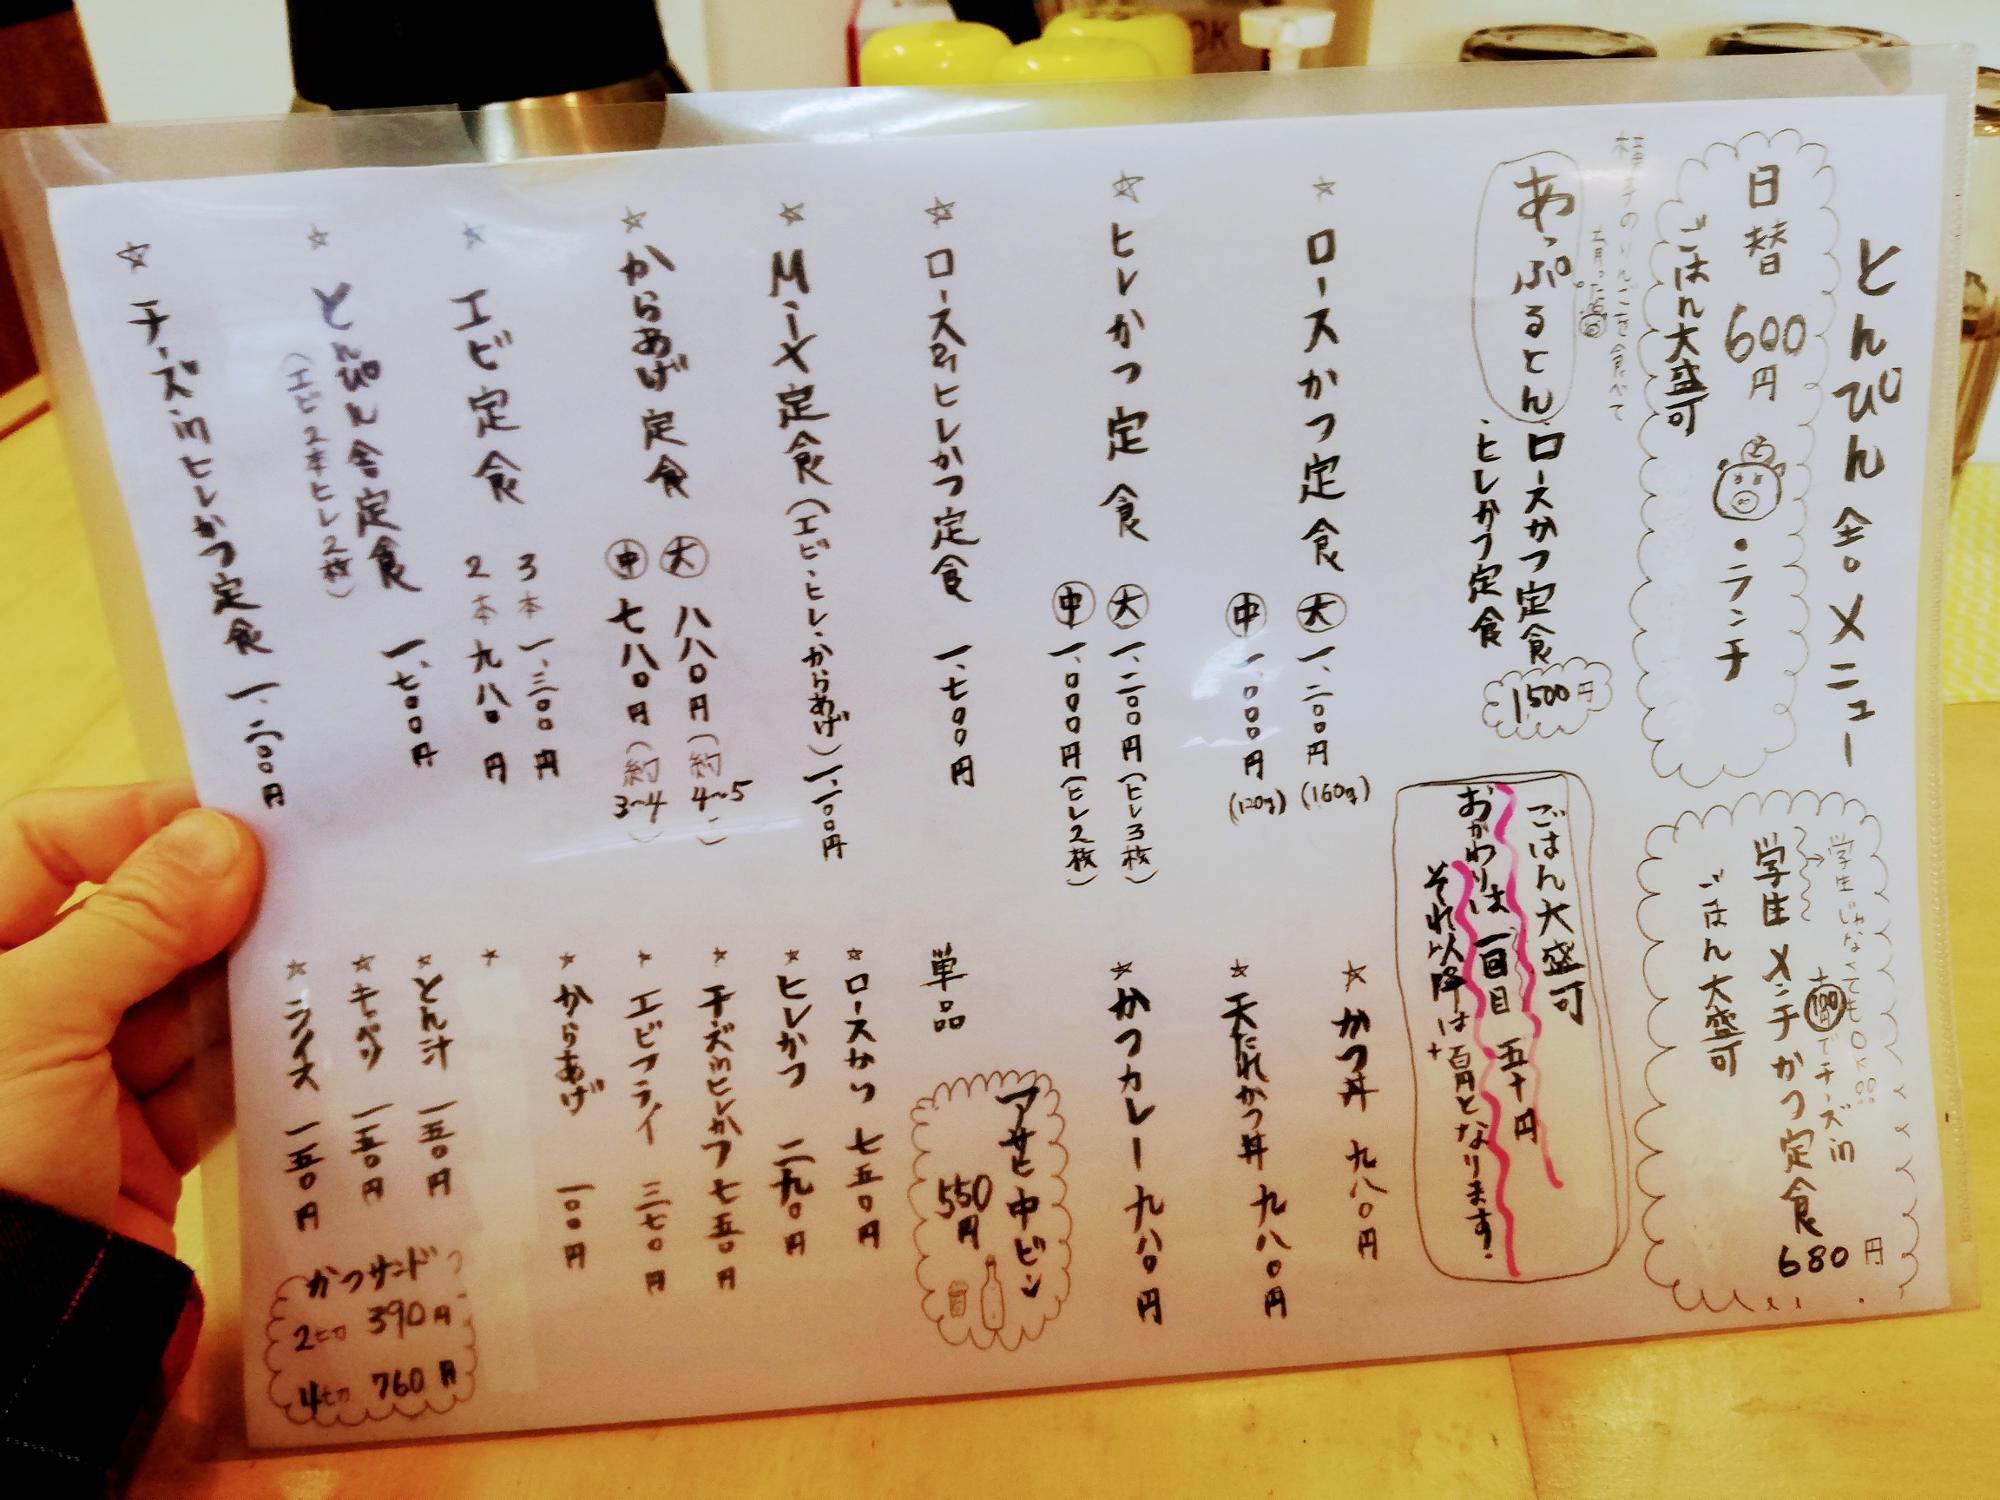 とんぴん舎。メニュー
日替・ランチ
600円
ごはん大盛可
学生じゃなくてもOK
学生メンチかつ定食
680円
+100円でチーズin
ごはん大盛可
横手のりんごさ食べて
育った
あっぷるとん
・ロースかつ定食
・ヒレかつ定食
1500円
ごはん大盛可
おかわりは一回目五十円
それ以降は百円となります。
☆ロースかつ定食
大 一、二〇〇円(160g)
中 一、〇〇〇円(120g)
☆ヒレかつ定食
大 一、二〇〇円(ヒレ3枚)
中 一、〇〇〇円(ヒレ2枚)
☆ロース&ヒレかつ定食 一、七〇〇円
☆Mix定食(エビ・ヒレ・からあげ)一、一〇〇円
☆からあげ定食
大 八八〇円(約4〜5)
中 七八〇円(約3〜4)
☆エビ定食
3本 一、三〇〇円
2本 九八〇円
☆とんぴん舎定食 一、七〇〇円
(エビ2本ヒレ2枚)
☆チーズinヒレかつ定食 一、二〇〇円
☆かつ丼 九八〇円
☆天たれかつ丼 九八〇円
☆かつカレー 九八〇円
アサヒ中ビン
550円
単品
☆ロースかつ 七五〇円
☆ヒレかつ 二九〇円
☆チーズinヒレかつ 七五〇円
☆エビフライ 三七〇円
☆からあげ 一〇〇円
☆
☆とん汁 一五〇円
☆キャベツ 一五〇円
☆ライス 一五〇円
かつサンド
2切 390円
4切 760円